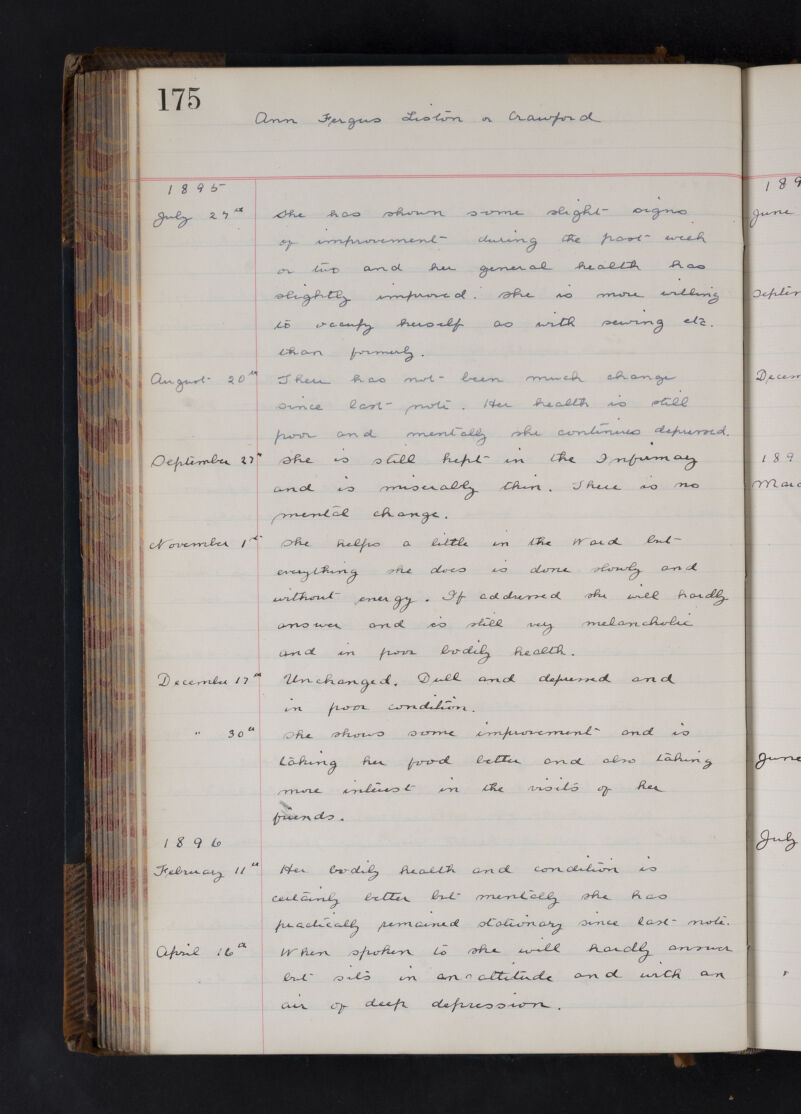 175
Ann Fergus Liston or Crawford
1895
July 27th She has shown some slight signs
of improvement during the past week
or two and her general health has
slightly improved. She is more willing
to occupy herself as with sewing etc.
than formerly.
August 20th There has not been much change
since last note. Her health is still
poor and mentally she continues depressed.
September 27th She is still kept in the Infirmary
and is miserably thin. There is no
mental change.
November 1st She helps a little in the Ward but
everything she does is done slowly and
without energy. If addressed she will hardly
answer and is still very melancholic
and in poor bodily health.
December 17th Unchanged. Dull and depressed and
in poor condition.
" 30th She shows some improvement and is
taking her food better and also taking
more interest in the visits of her
friends.
1896
February 11th Her bodily health and condition is
certainly better but mentally she has
practically remained stationary since last note.
April 16th When spoken to she will hardly answer
but sits in an attitude and with an
air of deep depression.
189
June
Septem
Decem
189
Marc
June
July
"